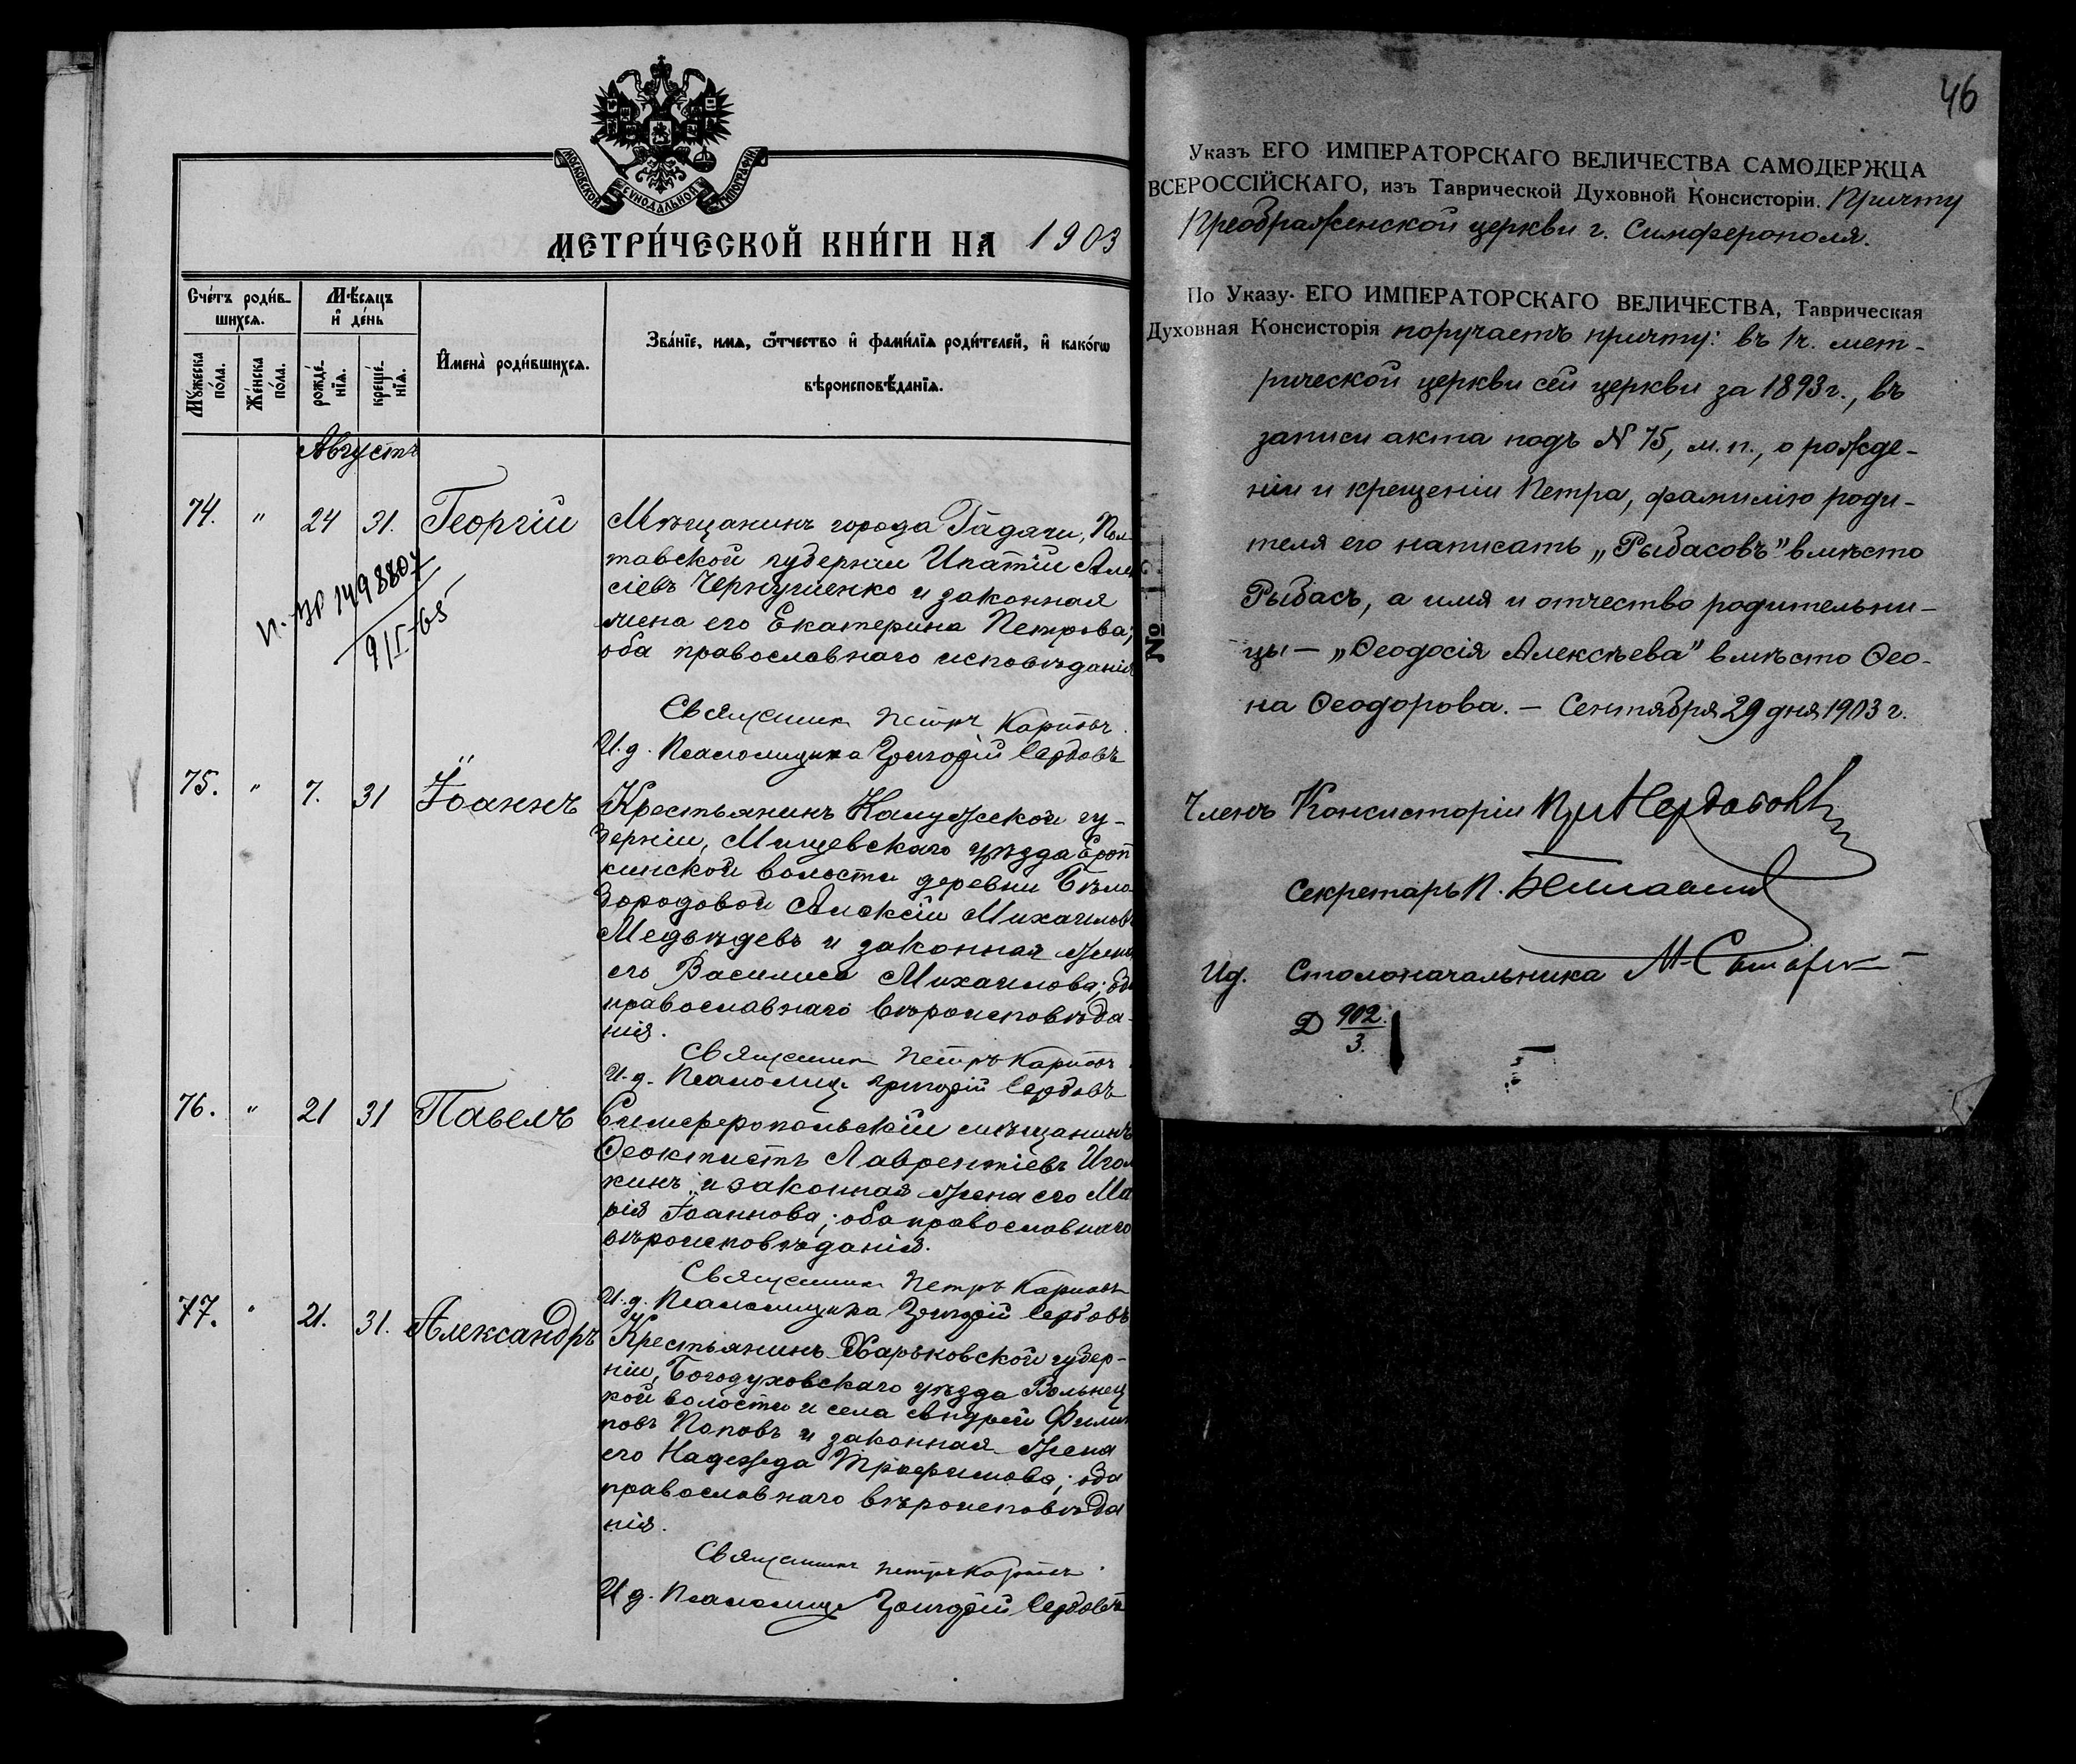 МОСКОВСКОЙ СѴНОДАЛЬНОЙ ТИПОГРАФІИ
МЕТРИ́ЧЕСКОЙ КНИ́ГИ НА 1903
Сче́тъ роди́в-
шихся.
Мѣ́сяцъ
и҆ де́нь
Мꙋ́жеска
по́ла.
Же́нска
по́ла.
рожде́-
нїѧ.
креще́-
нїѧ.
И҆мена̀ роди́вшихсѧ.
Зва́нїе, имѧ, ѻ҆́тчество и҆ фами́лїѧ роди́телей, и҆ како́гѡ
вѣроисповѣ́данїѧ.
Августъ
74. " 24 31. Георгій
Мѣщанинъ города Гадячи, Пол
тавской губерніи Ипатій Алек
сіевъ Чернушенко и законная
жена его Екатерина Петрова;
оба православнаго исповѣданія
149880
9/I-65
Священник Петръ Карповъ.
И.д. Псаломщика Григорій Сербовъ
75. " 7. 31 Іоаннъ
Крестьянинъ Калужской гу-
берніи, Мищевскаго уѣзда Ероп
кинской волости деревни Бѣло
бородовой Алексій Михаиловъ
Медвѣдевъ и законная жена
его Василиса Михаилова; оба
православнаго вѣроисповѣда-
нія.
Священник Петръ Карповъ
И.д. Псаломщ. Григорій Сербовъ
76. " 21 31 Павелъ
Симферопольскій мѣщанинъ
Ѳеоктистъ Лаврентіевъ Игол
кинъ и законная жена его Ма
рія Іоаннова; оба православнаго
вѣроисповѣданія.
Священник Петръ Карповъ
И.д. Псаломщика Григорій Сербовъ
77. " 21. 31. Александръ
Крестьянинъ Харьковской губер-
ніи, Богодуховскаго уѣзда Вольнец
кой волости и села Андрей Филип
повъ Поповъ и законная жена
его Надежда Трофимова; оба
православнаго вѣроисповѣда
нія.
Священникъ Петръ Карповъ
И.д. Псаломще Григорій Сербовъ
46
Указъ ЕГО ИМПЕРАТОРСКАГО ВЕЛИЧЕСТВА САМОДЕРЖЦА
ВСЕРОССІЙСКАГО, изъ Таврической Духовной Консисторіи. Причту
Преображенской церкви г. Симферополя.
По Указу ЕГО ИМПЕРАТОРСКАГО ВЕЛИЧЕСТВА, Таврическая
Духовная Консисторія поручаетъ причту: въ 1 ч. мет-
рической церкви сей церкви за 1893 г., въ
записи акта подъ N 75, м. п., о рожде-
ніи и крещеніи Петра, фамилію роди-
теля его написать „Рыбасовъ" вмѣсто
Рыбасъ, а имя и отчество родительни-
цы — „Ѳеодосія Алексѣева" вмѣсто Ѳео-
на Ѳеодорова. — Сентября 29 дня 1903 г.
№
Членъ Консисторіи
Секретарь П.
Ид. Столоначальника М.
Д 902.
3.